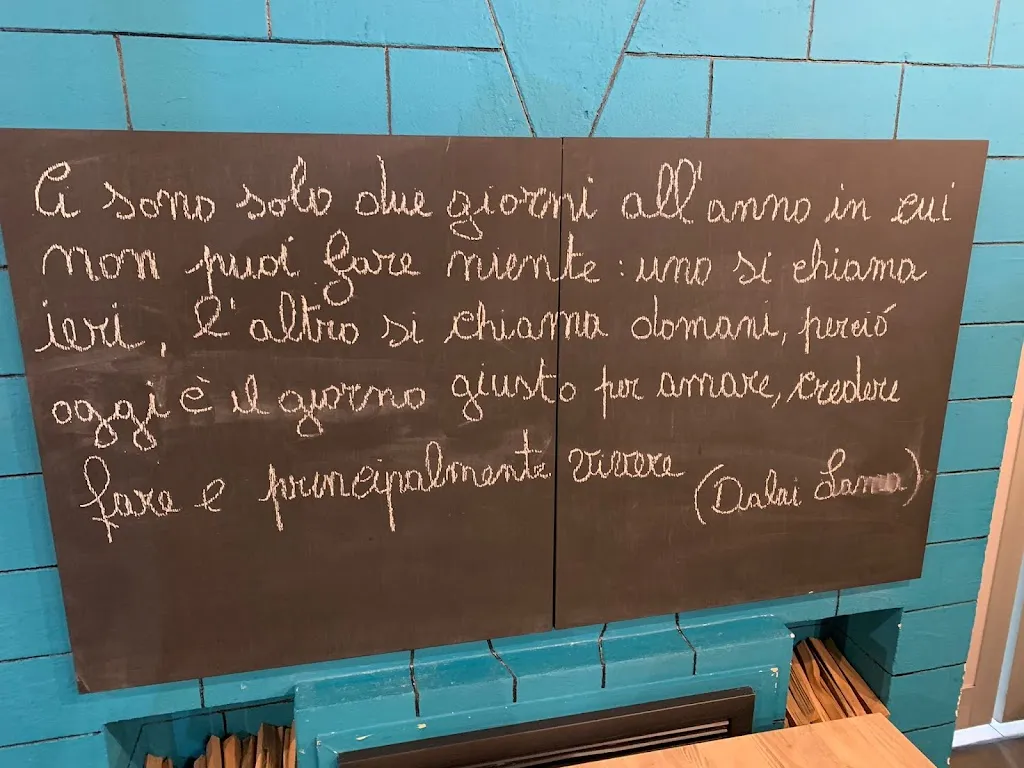 Ci sono solo due giorni all'anno in cui
non puoi fare niente: uno si chiama
ieri, l'altro si chiama domani, perció
oggi è il giorno giusto per amare, credere
fare e principalmente vivere (Dalai Lama)